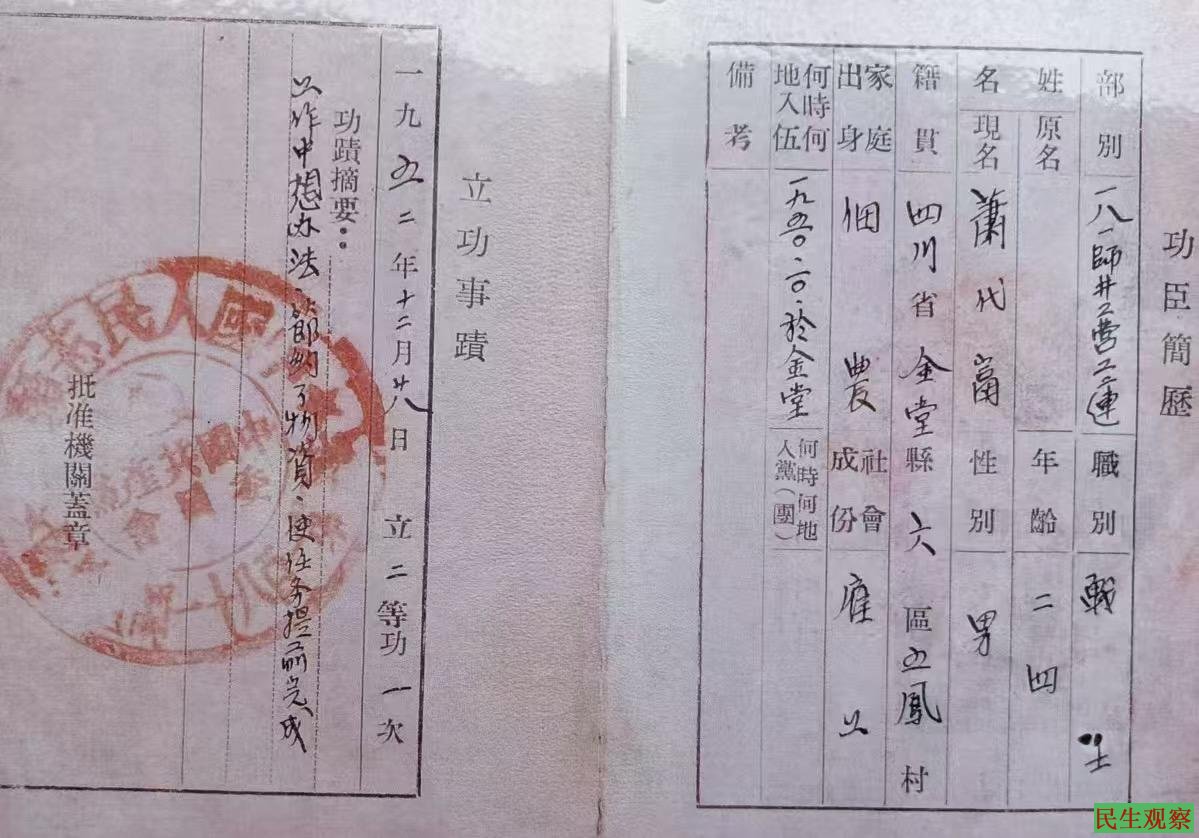 功臣簡歷
部別 一八一師 工營工二連 職別 戰士
姓名 原名 年齡 二四
現名 蕭代富 性別 男
籍貫 四川省金堂縣六區五鳳村
家庭出身 佃農 社會成份 雇工
何時何地入伍 一九五〇·六·於金堂 何時何地入黨(團)
備考
立功事蹟
一九五二年十二月廿八日 立二等功一次
功蹟摘要：
工作中想办法、節約了物資、使任务提前完成
批准機關蓋章
中國人民志
中國共產黨
委員會
民生观察